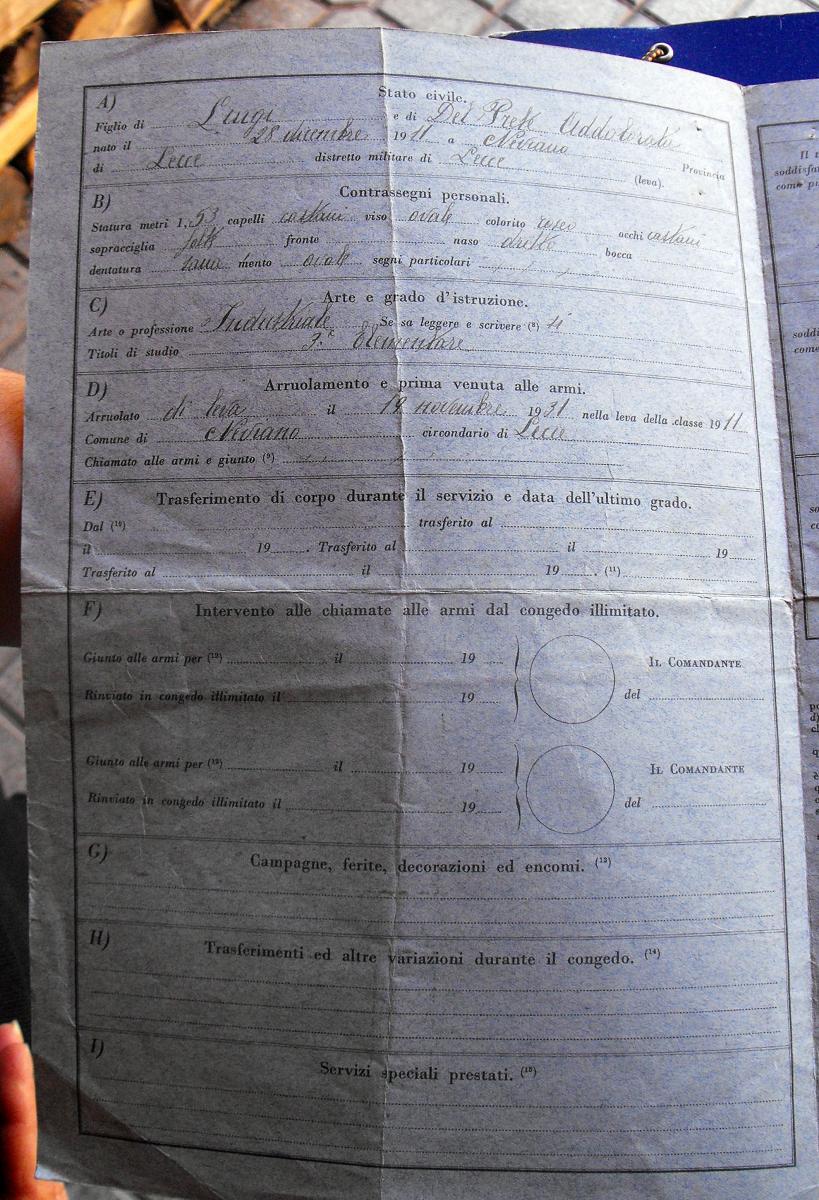 A) Stato civile.
Figlio di Luigi e di Del Prete Addolorata
nato il 28 dicembre 1911 a Neviano Provincia
di Lecce distretto militare di Lecce (leva).
B) Contrassegni personali.
Statura metri 1,53 capelli castani viso ovale colorito roseo occhi castani
sopracciglia folte fronte naso diritto bocca
dentatura sana mento ovale segni particolari
C) Arte e grado d'istruzione.
Arte o professione Industriale Se sa leggere e scrivere (8) si
Titoli di studio 3.ª elementare
D) Arruolamento e prima venuta alle armi.
Arruolato di leva il 19 novembre 1931 nella leva della classe 1911
Comune di Neviano circondario di Lecce
Chiamato alle armi e giunto (9)
E) Trasferimento di corpo durante il servizio e data dell'ultimo grado.
Dal (10) trasferito al
il 19 . Trasferito al il 19
Trasferito al il 19 . (11)
F) Intervento alle chiamate alle armi dal congedo illimitato.
Giunto alle armi per (12) il 19 Il Comandante
Rinviato in congedo illimitato il 19 del
Giunto alle armi per (12) il 19 Il Comandante
Rinviato in congedo illimitato il 19 del
G) Campagne, ferite, decorazioni ed encomi. (13)
H) Trasferimenti ed altre variazioni durante il congedo. (14)
I) Servizi speciali prestati. (15)